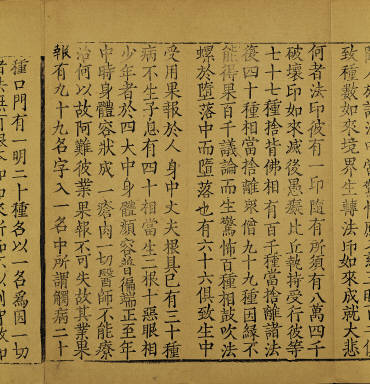 致種數如來境界生轉法印如來成就大悲
何者法印彼有一印隨有所須有八萬四千
破壞印如來滅後愚癡比丘執持受行彼等
七十七種捨背佛相有百千種當捨離諸法
復四十種相當捨離眾僧九十九種因緣不
能得果百千議論而生驚怖百種相鼓吹法
螺於墮落中而墮落也有六十六俱致生中
受用果報於人身中丈夫根具已有三十種
病不生子息有四十相當生二根十惡眼相
少年者於四大中身體顏容普徧端正至年
中時身體容狀成一瘡肉一切醫師不能療
治何以故阿難彼業果報不可失故其業果
報有九十九名字入一名中所謂觸病二十
種口門有一明二十種名以一名為因一切